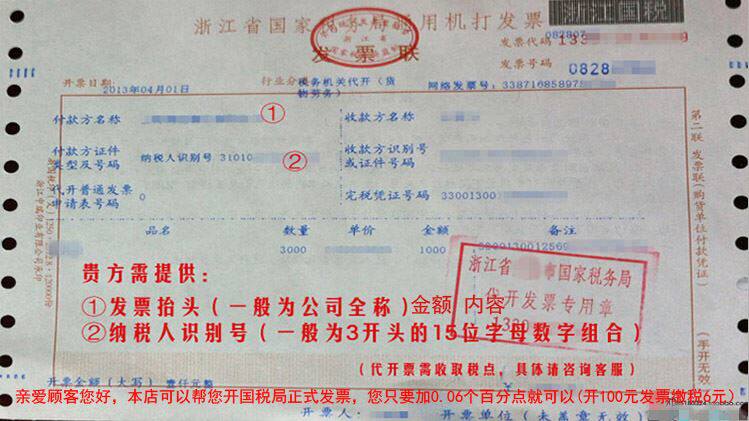 浙江省国家税务局通用机打发票
浙江国税
发票联
082807
发票代码 133
发票号码 0828
开票日期: 2013年04月01日
行业分类 税务机关代开(货物劳务)
网络发票号: 338716858975
付款方名称
①
收款方名称
付款方证件类型及号码
纳税人识别号 31010
②
收款方识别号或证件号码
代开普通发票申请表号码
0
完税凭证号码 33001300
品名 数量 单价 金额 备注
3000 1000
贵方需提供:
①发票抬头(一般为公司全称)金额 内容
②纳税人识别号(一般为3开头的15位字母数字组合)
(代开票需收取税点,具体请咨询客服)
浙江省 市国家税务局
代开发票专用章
第二联 发票联(购货单位付款凭证)
(手开无效)
开票金额(大写) 壹仟元整
亲爱顾客您好,本店可以帮您开国税局正式发票,您只要加0.06个百分点就可以(开100元发票缴税6元)
开票人
开票单位(未盖章无效)